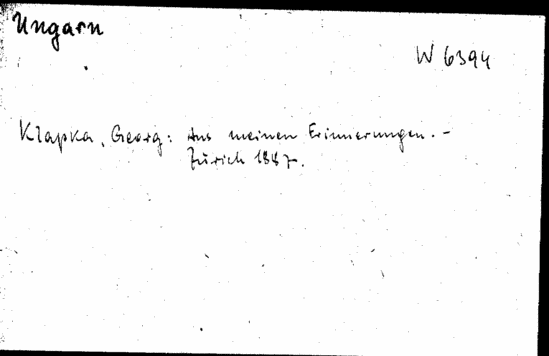 Ungarn
W 6394
Klapka, Georg: Aus meinen Erinnerungen. –
Zürich 1887.